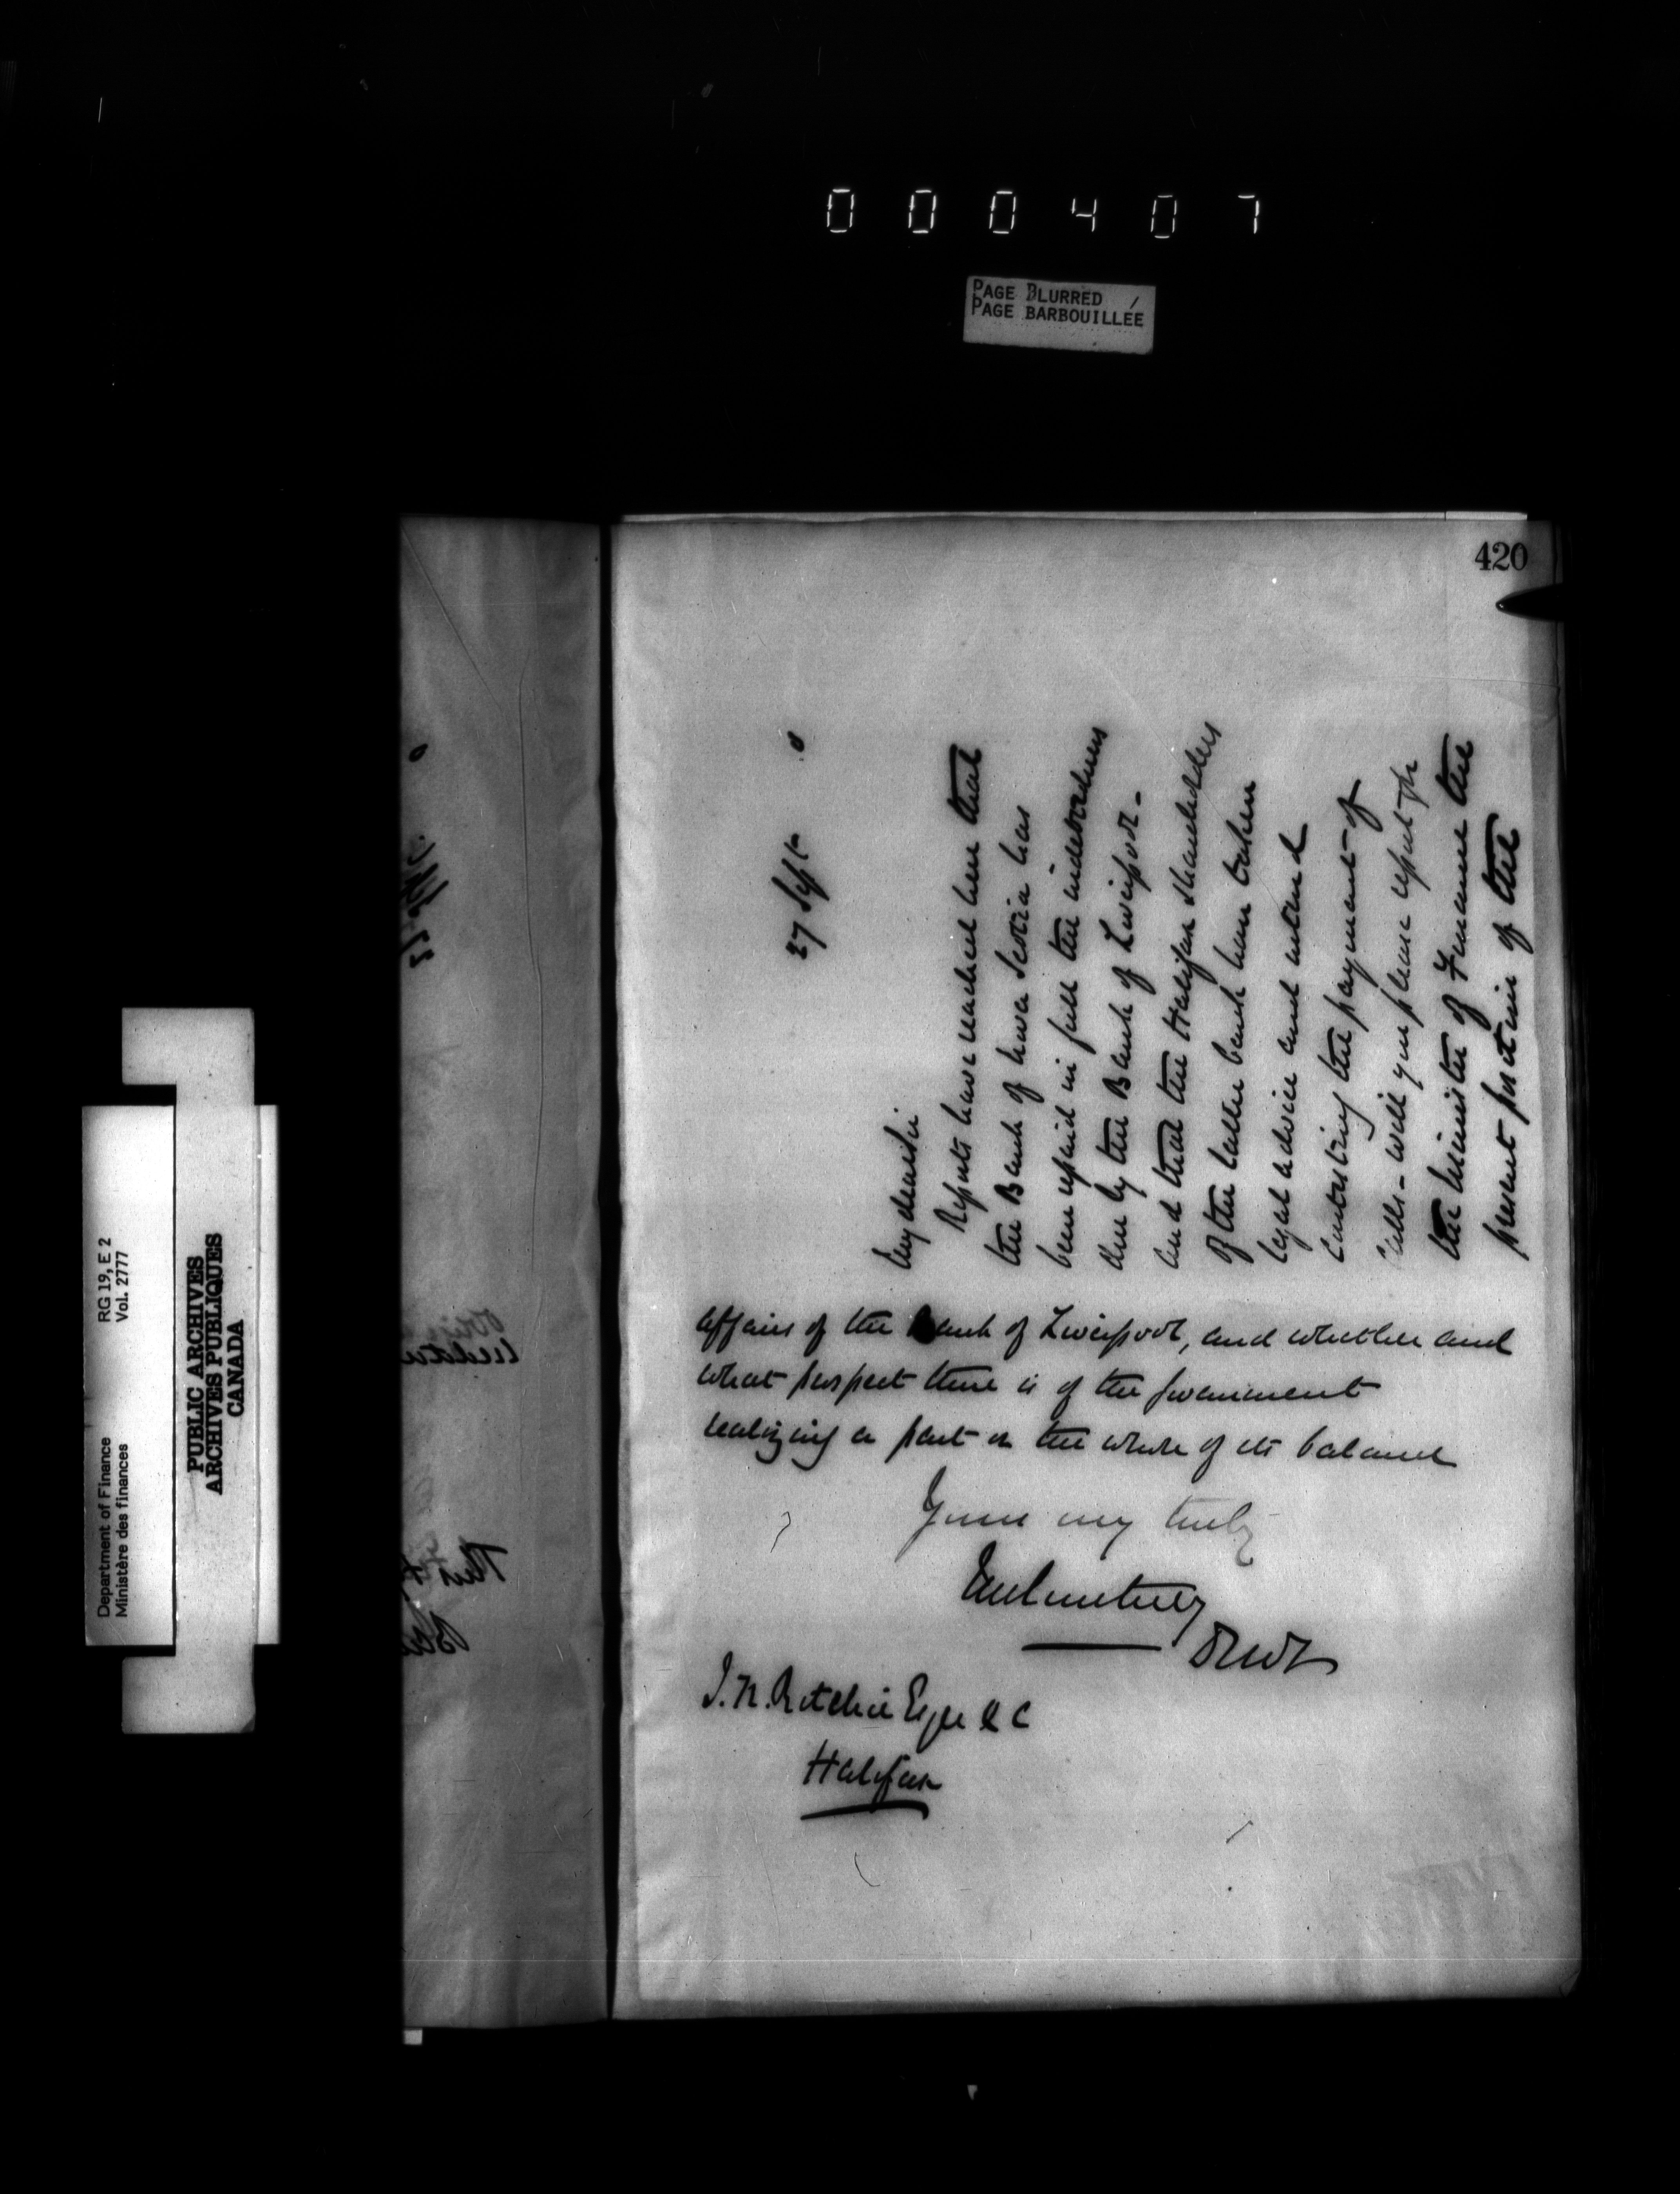 000407
PAGE BLURRED /
PAGE BARBOUILLÉE
420
27 Sept 0
My dear Sir
Reports have reached here that
the Bank of Nova Scotia has
been repaid in full the indebtedness
due by the Bank of Liverpool -
and that the Halifax shareholders
of the latter bank have taken
legal advice and intend
contesting the payment of
calls - will you please report for
the Minister of Finance the
present position of the
affairs of the Bank of Liverpool, and whether and
what prospect there is of the Government
realizing a part or the whole of its balance
Yours very truly
JMCourtney
DMF
J.N. Ritchie Esqre Q C
Halifax
Department of Finance RG 19, E 2
Ministère des finances Vol. 2777
PUBLIC ARCHIVES
ARCHIVES PUBLIQUES
CANADA